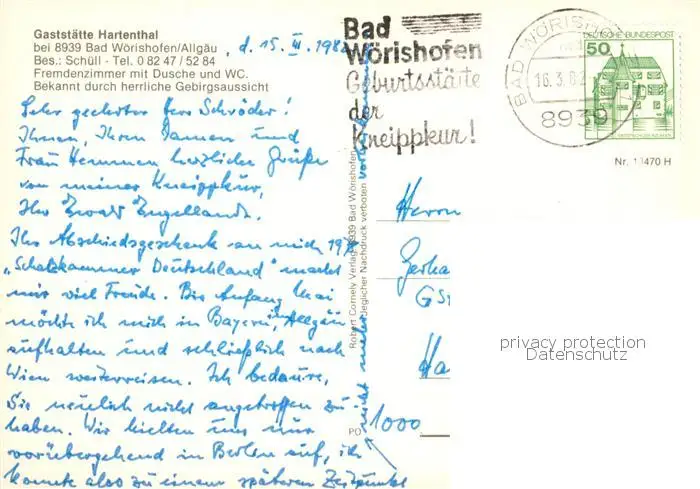 Gaststätte Hartenthal
bei 8939 Bad Wörishofen/Allgäu
Bes.: Schüll - Tel. 0 82 47 / 52 84
Fremdenzimmer mit Dusche und WC.
Bekannt durch herrliche Gebirgsaussicht
, d. 15. III. 1982
Sehr geehrter Herr Schröder!
Ihnen, Ihren Damen und
Frau Hemmen herzliche Grüße
von meiner Kneippkur,
Ihr Ewald Engelland.
Ihr Abschiedsgeschenk an mich
„Schatzkammer Deutschland" macht
mir viel Freude. Bis Anfang Mai
möchte ich mich in Bayern, Allgäu
aufhalten und schließlich nach
Wien weiterreisen. Ich bedaure,
Sie neulich nicht angetroffen zu
haben. Wir hielten uns nur
vorübergehend in Berlin auf, ich
konnte also zu einem späteren Zeitpunkt
nicht mehr
Robert Cornely Verlag 8939 Bad Wörishofen
Jeglicher Nachdruck verboten
Bad
Wörishofen
Geburtsstätte
der
Kneippkur!
BAD WÖRISHOFEN
16.3.82
8939
DEUTSCHE BUNDESPOST
50
Nr. 13470 H
Herrn
Gerha
Ha
PO
1000
privacy protection
Datenschutz